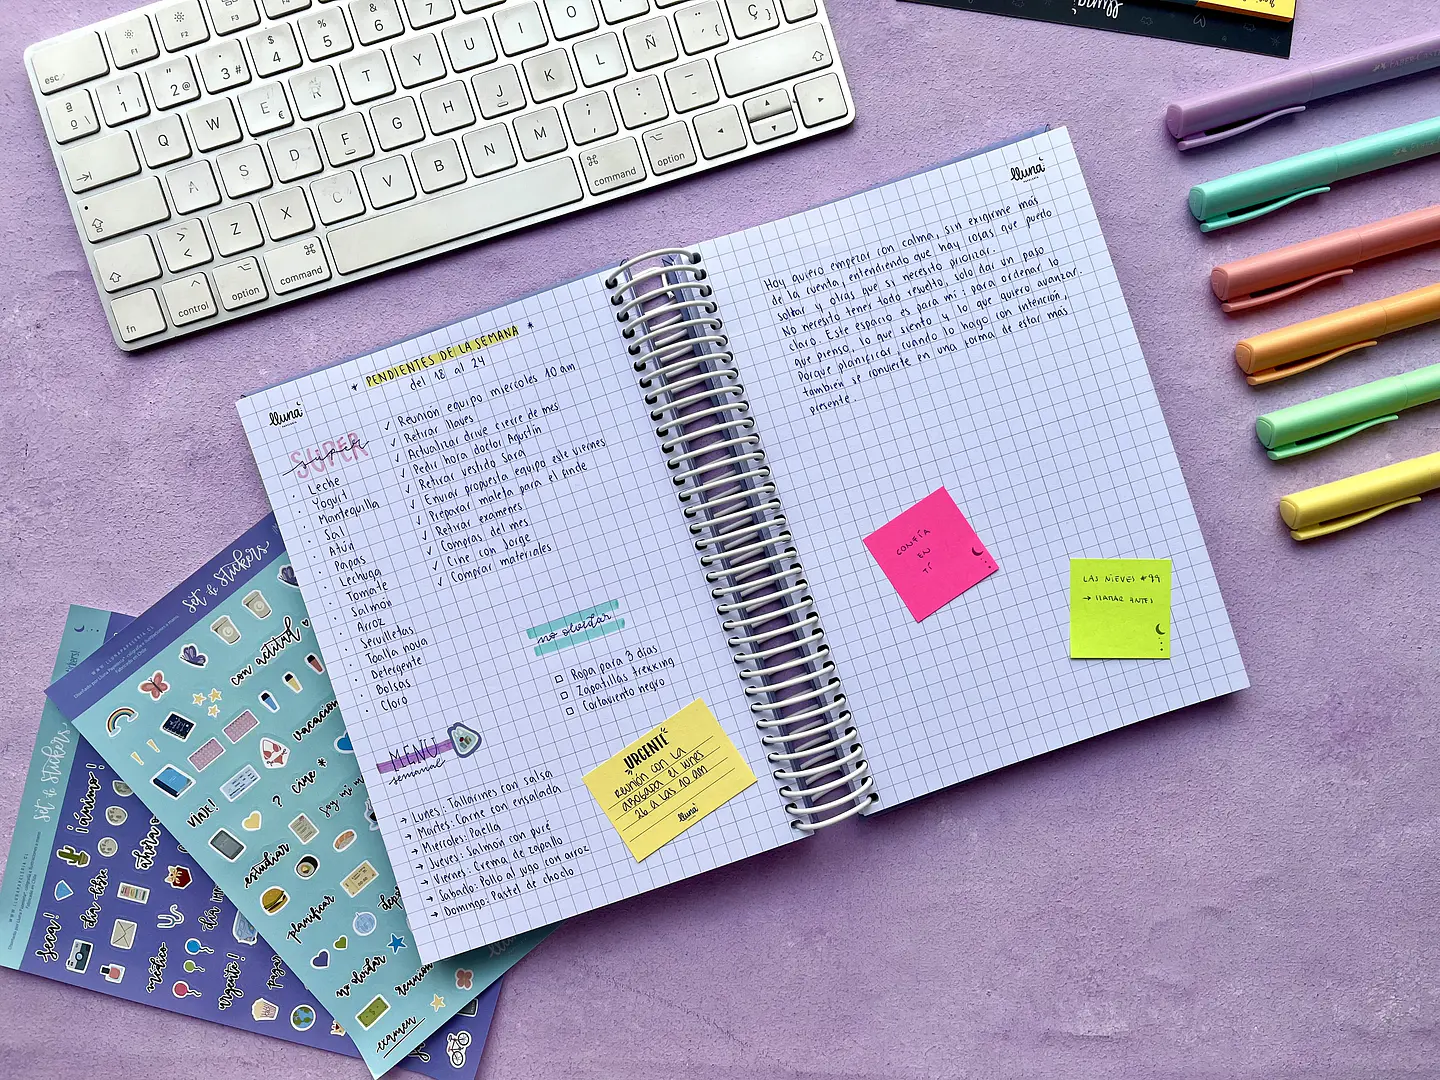 lluna
Hoy quiero empezar con calma, sin exigirme más
de la cuenta, entendiendo que hay cosas que puedo
soltar y otras que si necesito priorizar.
No necesito tener todo resuelto, solo dar un paso
claro. Este espacio es para mi: para ordenar lo
que pienso, lo que siento y lo que quiero avanzar.
Porque planificar, cuando lo hago con intención,
también se convierte en una forma de estar más
presente.
CONFÍA
EN
TÍ
LAS NIEVES #99
→ LLAMAR ANTES
lluna
PENDIENTES DE LA SEMANA
del 18 al 24
✓ Reunión equipo miercoles 10 am
✓ Retirar llaves
✓ Actualizar drive cierre de mes
✓ Pedir hora doctor Agustín
✓ Retirar vestido Sara
✓ Enviar propuesta equipo este viernes
✓ Preparar maleta para el finde
✓ Retirar examenes
✓ Compras del mes
✓ Cine con Jorge
✓ Comprar materiales
SUPER
super
· Leche
· Yogurt
· Mantequilla
· Sal
· Atún
· Papas
· Lechuga
· Tomate
· Salmón
· Arroz
· Servilletas
· Toalla nova
· Detergente
· Bolsas
· Cloro
no olvidar
Ropa para 3 días
Zapatillas trekking
Cortaviento negro
MENÚ
semanal
→ Lunes: Tallarines con salsa
→ Martes: Carne con ensalada
→ Miercoles: Paella
→ Jueves: Salmón con puré
→ Viernes: Crema de zapallo
→ Sabado: Pollo al jugo con arroz
→ Domingo: Pastel de choclo
URGENTE
reunión con la
abogada el lunes
26 a las 10 am
lluna
set de stickers
WWW.LLUNAPAPELERIA.CL
con actitud
vacacion
VIAJE!
? cine *
soy mi m
estudiar
planificar
no olvidar
reunión
examen
set de stickers
¡ánimo!
ahora
día libre
seca!
médico
urgente!
pagar
lluna
esc
F1
F2
Q
W
E
R
T
Y
U
I
O
A
S
D
F
G
H
J
K
L
Ñ
Z
X
C
V
B
N
M
fn
control
option
command
command
option